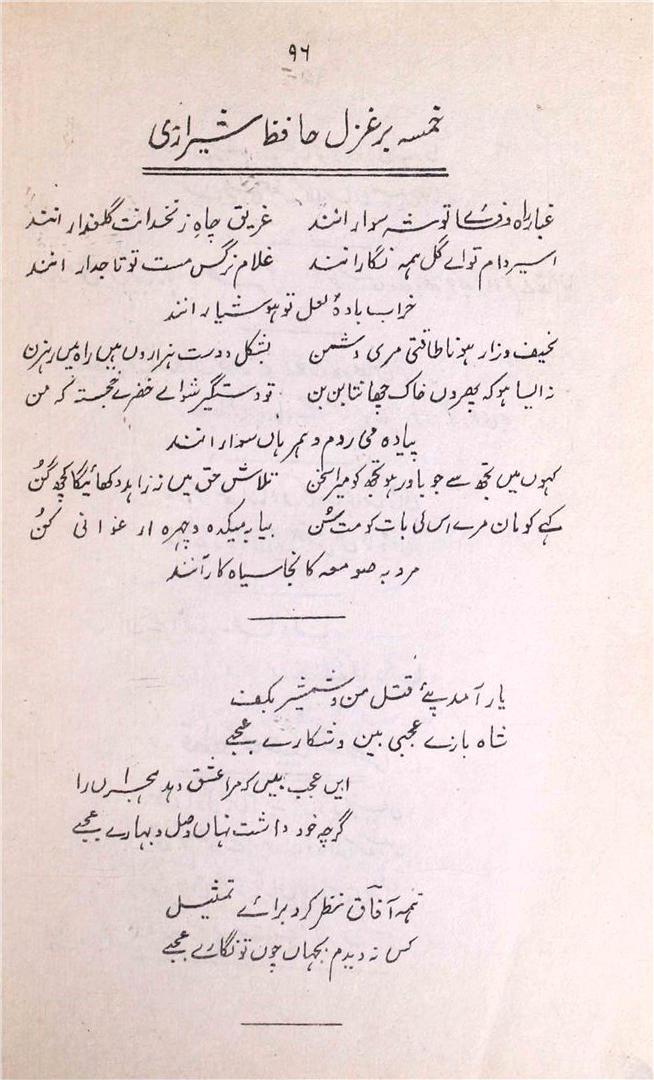 ۹۶
خمسہ بر غزل حافظ شیرازی
غبار راہ تو شہ سوار انند غریق چاہِ زنخدانت گلعذار انند
اسیر دام تو اے گل ہمہ نگارانند غلام نرگس مست تو تاجدار انند
خراب بادۂ لعل تو ہوشیارانند
نحیف وزار ہوں ناطاقتی مری دشمن بشکل دوست ہزاروں ہیں راہ میں رہزن
نہ ایسا ہو کہ پھروں خاک چھانتا بن بن تو دستگیر شو اے خضرِ خجستہ کہ من
پیادہ می روم و ہمرہاں سوارانند
کہوں میں تجھ سے جو باور ہو تجھ کو میرا سخن تلاش حق میں نہ زاہد دکھائیگا کچھ گُن
کہے کو مان مرے اس کی بات کو مت سُن بیا بہ میکدہ و چہرہ ارغوانی کُن
مرو بہ صومعہ کانجا سیاہ کارانند
یار آمد پئے قتل من و شمشیر بکف
شاہ بازے عجبی بین و شکارے عجبے
ایں عجب بیں کہ مرا عشق دہد ہجراں را
گرچہ خود داشت نہاں وصل و بہارے عجبے
ہمہ آفاق نظر کرد برائے تمثیل
کس نہ دیدم بجہاں چوں تو نگارے عجبے